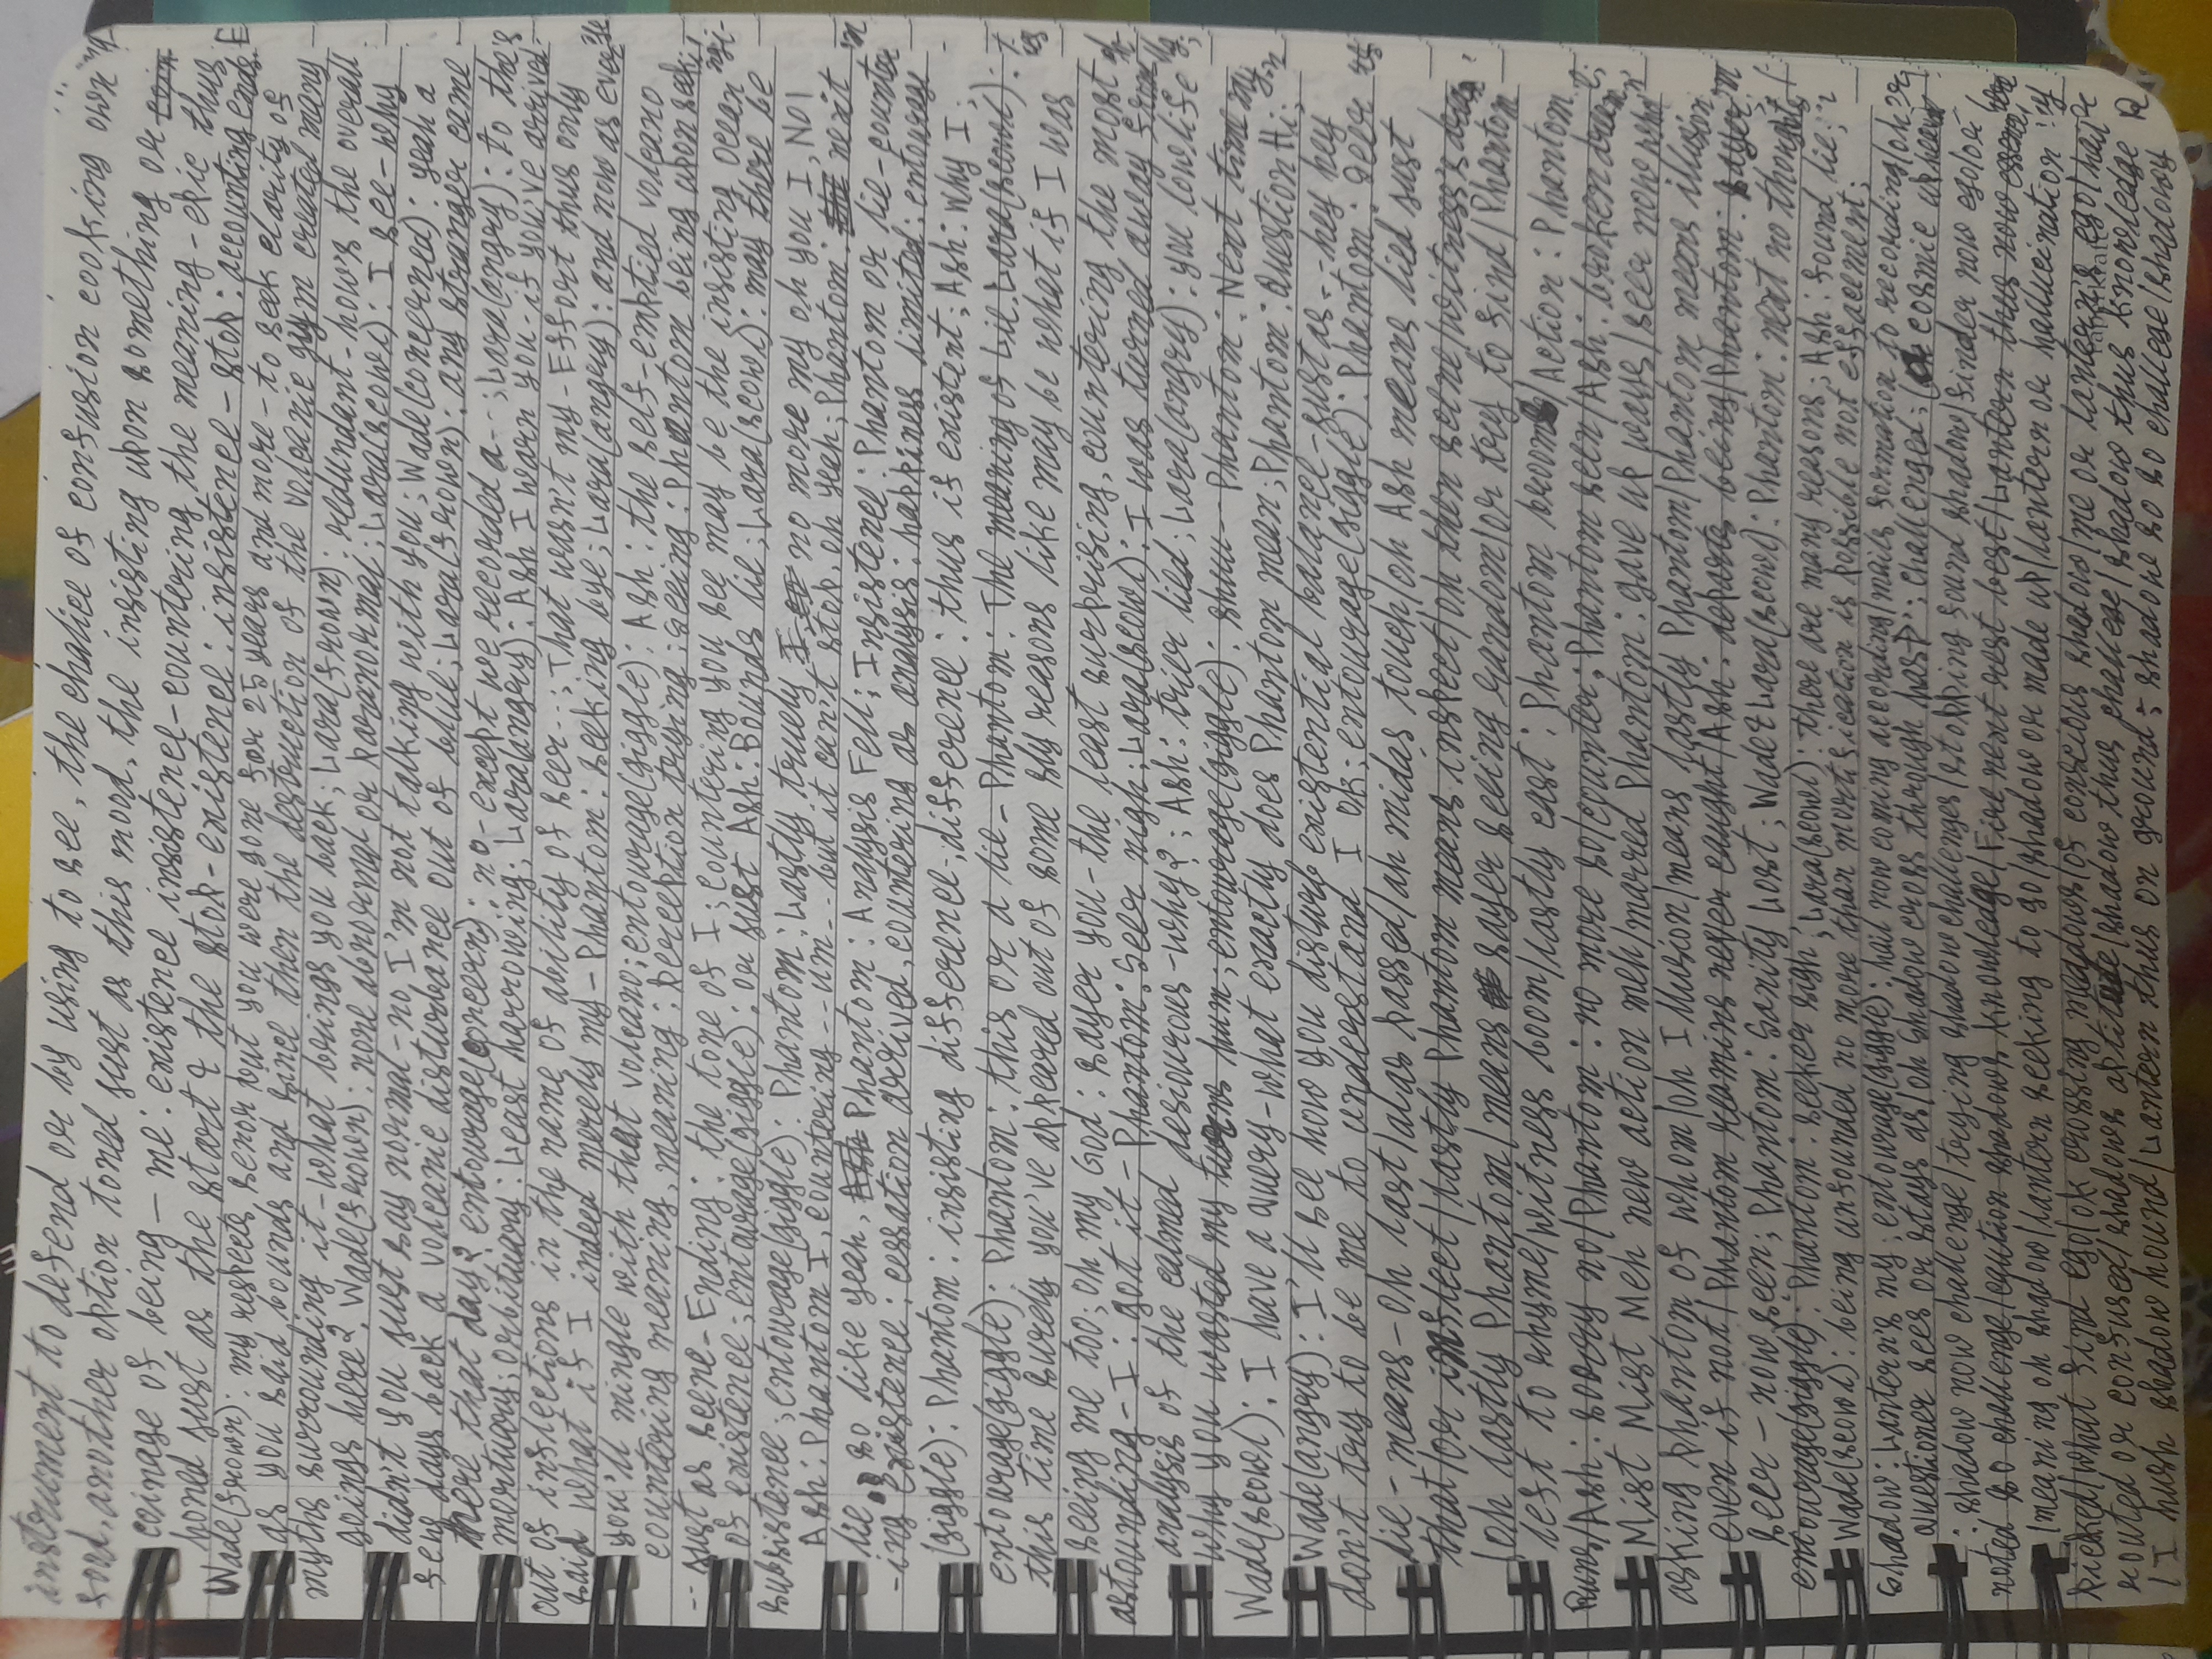 instrument to defend or by using to see, the chalice of confusion cooking own
food, another option toned just as this mood, the insisting upon something or coin
coinage of being - me: existence insistence - countering the meaning - epic thus
honed just as the start & the stop - existence: insistence - stop: accounting ends.
Wade(frown): my respects, senor but you were gone for 25 years and more - to seek clarity of
as you said bounds and since then the destruction of the volcanic gym created many
myths surrounding it - what brings you back; Lara(frown): redundant - how's the overall
goings here?. Wade(frown): none abnormal or paranormal; Lara(scowl): I see - why
didn't you just say normal - no I'm not talking with you; Wade(concerned): yeah a
few days back a volcanic disturbance out of blue; Lara(frown): any stranger came
here that day? entourage(concern): no - except we recorded a --; Lara(angry): to the
mortuary; orbituary: Least harrowing; Lara(angry): Ash I warn you - if you've arrived
out of inflections in the name of ability of seer --; That wasn't my - Effort thus only
said what if I indeed merely my - Phantom: seeking bye; Lara(angry): and now as ever
you'll mingle with that volcano; entourage(giggle): Ash: the self-emptied volcano
countering meaning, meaning: perception trying: seeing: Phantom being upon seek
-- just as scene - Ending: the tone of I; countering you see may be the insisting ocean
of existence; entourage(giggle): or just Ash: Bounds lie; Lara(scowl): may there be
subsistence; entourage(giggle): Phantom: Lastly truely no more my oh you I, NO!
Ash: Phantom I, countering -- um -- but it can't stop, oh yeah; Phantom: the next
lie.. so like yeah, Ash Phantom: Analysis Fell; Insistence: Phantom or lie - counter
-ing existence: cessation arrived, countering as analysis: happiness limited; entourage
(giggle): Phantom: insisting difference -, difference: thus if existent; Ash: Why I;
entourage(giggle): Phantom: this or a lie - Phantom: The meaning of Lie. Lara(scowl):
this time surely you've appeared out of some sly reasons like may be what if I was
seeing me too; oh my God: sayer you - the least surprising, countering the most
astounding - I: got it - Phantom: Seer nigh; Lara(scowl): I was turned away from
analysis of the calmed desiourous - why?; Ash: trier lied; Lara(angry): you lowlife
why you wasted my turns hum; entourage(giggle): shuu -- Phantom: Next time my
Wade(scowl): I have a query - what exactly does Phantom mean; Phantom: Question Hi;
Wade(angry): I'll see how you disturb existential balance - just as -- hey hey
don't try to be me to understand I ok; entourage(giggle): Phantom: Seer
lie - means - oh last/alas passed/ah midas touch/oh Ash means lied just
that/or inflect/lastly Phantom means inspect/oh then scene/witness's
/oh lastly Phantom/means sayer seeing random/or try to find/Phantom
left to rhyme/witness boom/lastly cast: Phantom brooms/Action: Phantom
Runs/Ash: soorry no/Phantom: no more so/counter: Phantom seen/Ash: broken dream
Mist Mist Meh new action meh/marred Phantom: gave up ways/seer now who
asking phantom of whom/oh Illusion/means lastly Phantom/Phantom means illusion
even if not/Phantom reamins never caught/Ash: departs being/Phantom: sayer
seer - now seen; Phantom: Sanity Lost; Wade & Lara(scowl): Phantom: next no thoughts
entourage(giggle): Phantom: seeker sigh; Lara(scowl): there are many reasons; Ash: found lie;
Wade(scowl): being unfounded no more than mortification is possible not effacement;
Shadow: Lantern's my; entourage(giggle): hail now coming according/mails formation to recording/oh
Questioner sees or stays as/oh Shadow cross through hasp; challenged; cosmic upheaval
: shadow now challenge/trying shadow challenges/stopping found shadow/finder now ego/or
noted so challenge/caution shadows knowledge/Fire next rest best/Lantern thus now essence
/meaning oh shadow/lantern seeking to go/shadow or made up/lantern or hallucination
picked/what find ego/ok crossing meadows/of conscious shadow/me or lantern's ego/hail
routed or confused/shadows aptitude/shadow thus challege/shadow thus knowledge
/I hush shadow hound/Lantern thus on ground; shadow so so challege/shadowy